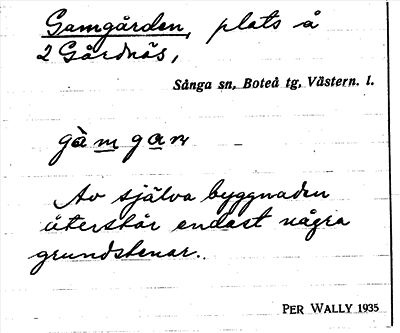 Gamgården, plats å
2 Gårdnäs,
Sånga sn, Boteå tg, Västern. l.
gàmgan
Av själva byggnaden
återstår endast några
grundstenar.
PER WALLY 1935